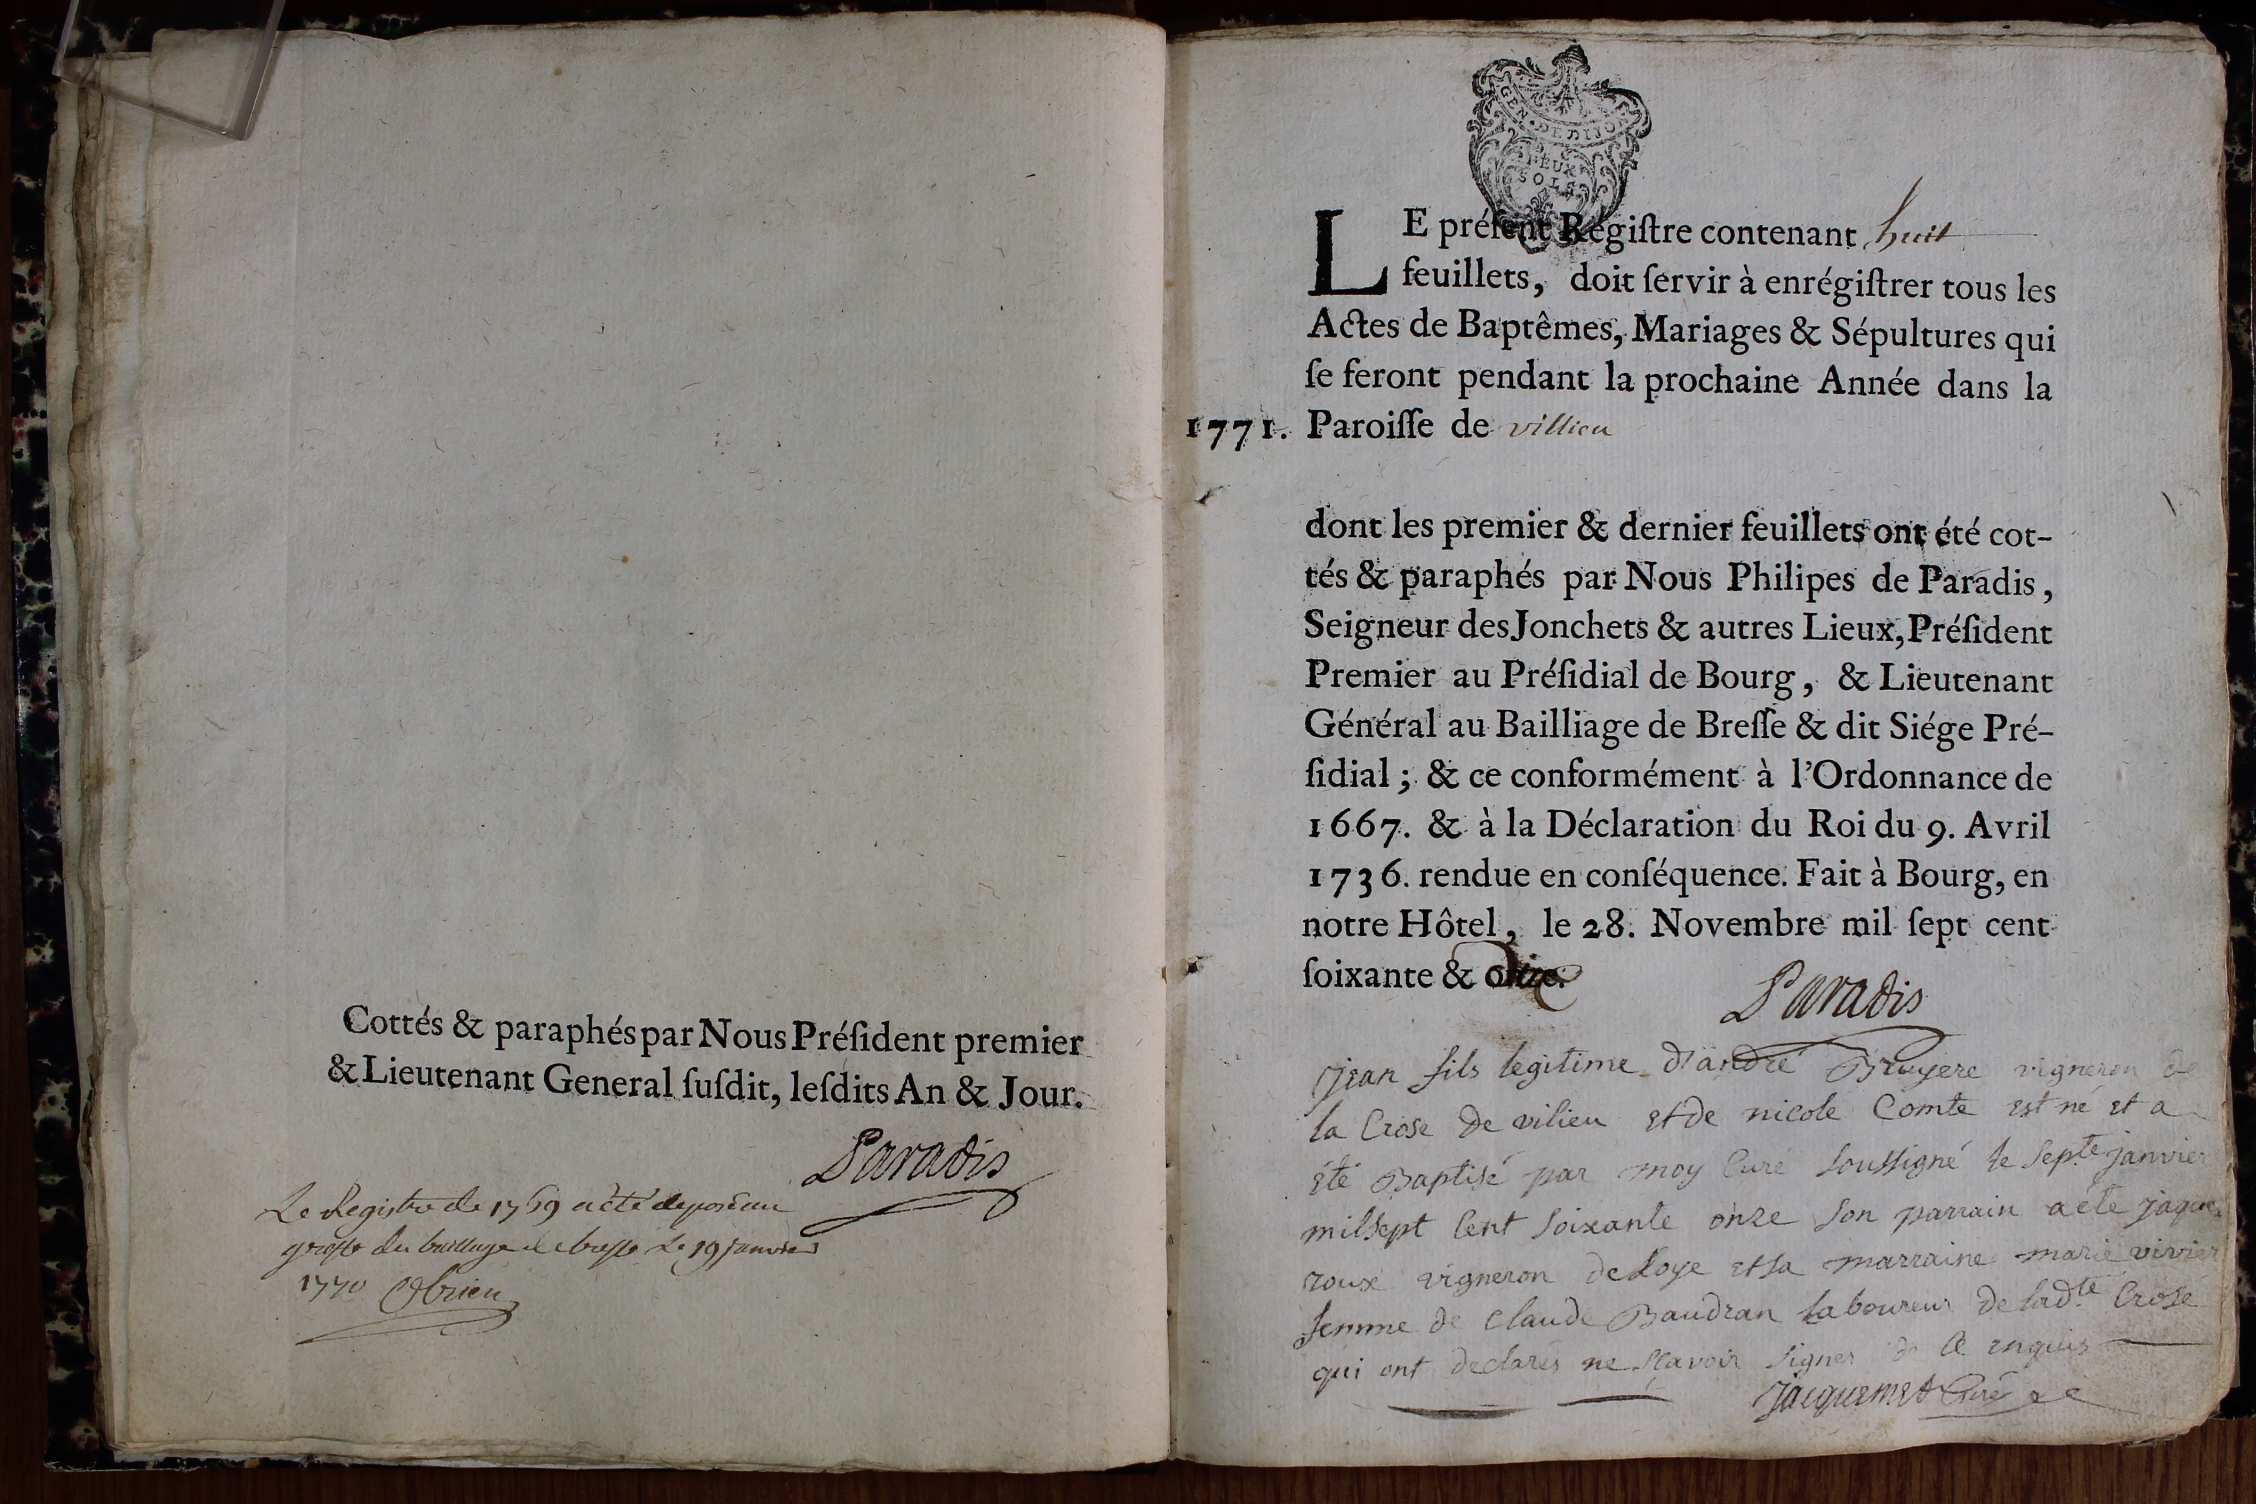 Cottés & paraphés par Nous Préſident premier
& Lieutenant General ſuſdit, leſdits An & Jour.
Paradis
Le Registre de 1769 a été deposé au
greffe du bailliage de bresse le 19 janvier
1770 Obrien
GEN. DE DIJON
DEUX
SOLS
LE préſent Régiſtre contenant huit
feuillets, doit ſervir à enrégiſtrer tous les
Actes de Baptêmes, Mariages & Sépultures qui
ſe feront pendant la prochaine Année dans la
1771. Paroiſſe de villieu
dont les premier & dernier feuillets ont été cot-
tés & paraphés par Nous Philipes de Paradis,
Seigneur des Jonchets & autres Lieux, Préſident
Premier au Préſidial de Bourg, & Lieutenant
Général au Bailliage de Breſſe & dit Siége Pré-
ſidial ; & ce conformément à l'Ordonnance de
1667. & à la Déclaration du Roi du 9. Avril
1736. rendue en conſéquence. Fait à Bourg, en
notre Hôtel, le 28. Novembre mil ſept cent
ſoixante &
Paradis
Jean fils legitime d'andré Bruyere vigneron de
la Crose de vilieu et de nicole Comte est né et a
été Baptisé par moy Curé soussigné le sept.e janvier
mil sept Cent soixante onze son parrain a eté jaques
roux vigneron de Loye et sa marraine marie vivier
femme de Claude Baudran laboureur de lad.te Crose
qui ont declarés ne sçavoir signer de Ce enquis
Jacquemet Curé